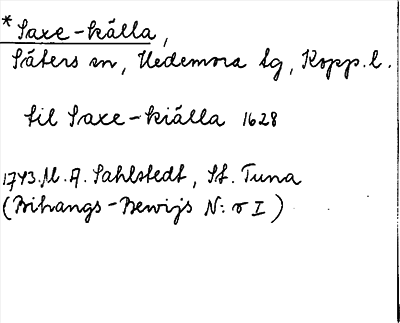 *Saxe-källa,
Säters sn, Hedemora tg, Kopp. l.
til Saxe-kiälla 1628
1743. M. A. Sahlstedt, St. Tuna
(Bihangs-Bewijs N: I)